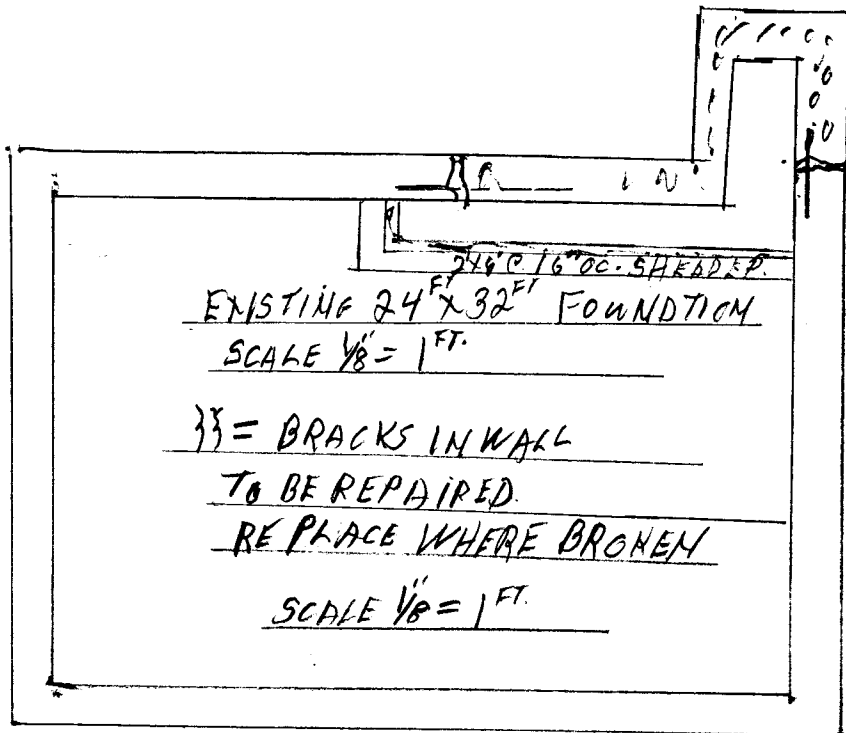 2x6" @ 16" OC.
EXISTING 24FT X 32FT FOUNDTION
SCALE 1/8" = 1FT.
}} = BRACKS IN WALL
TO BE REPAIRED.
REPLACE WHERE BROKEN
SCALE 1/8" = 1FT.